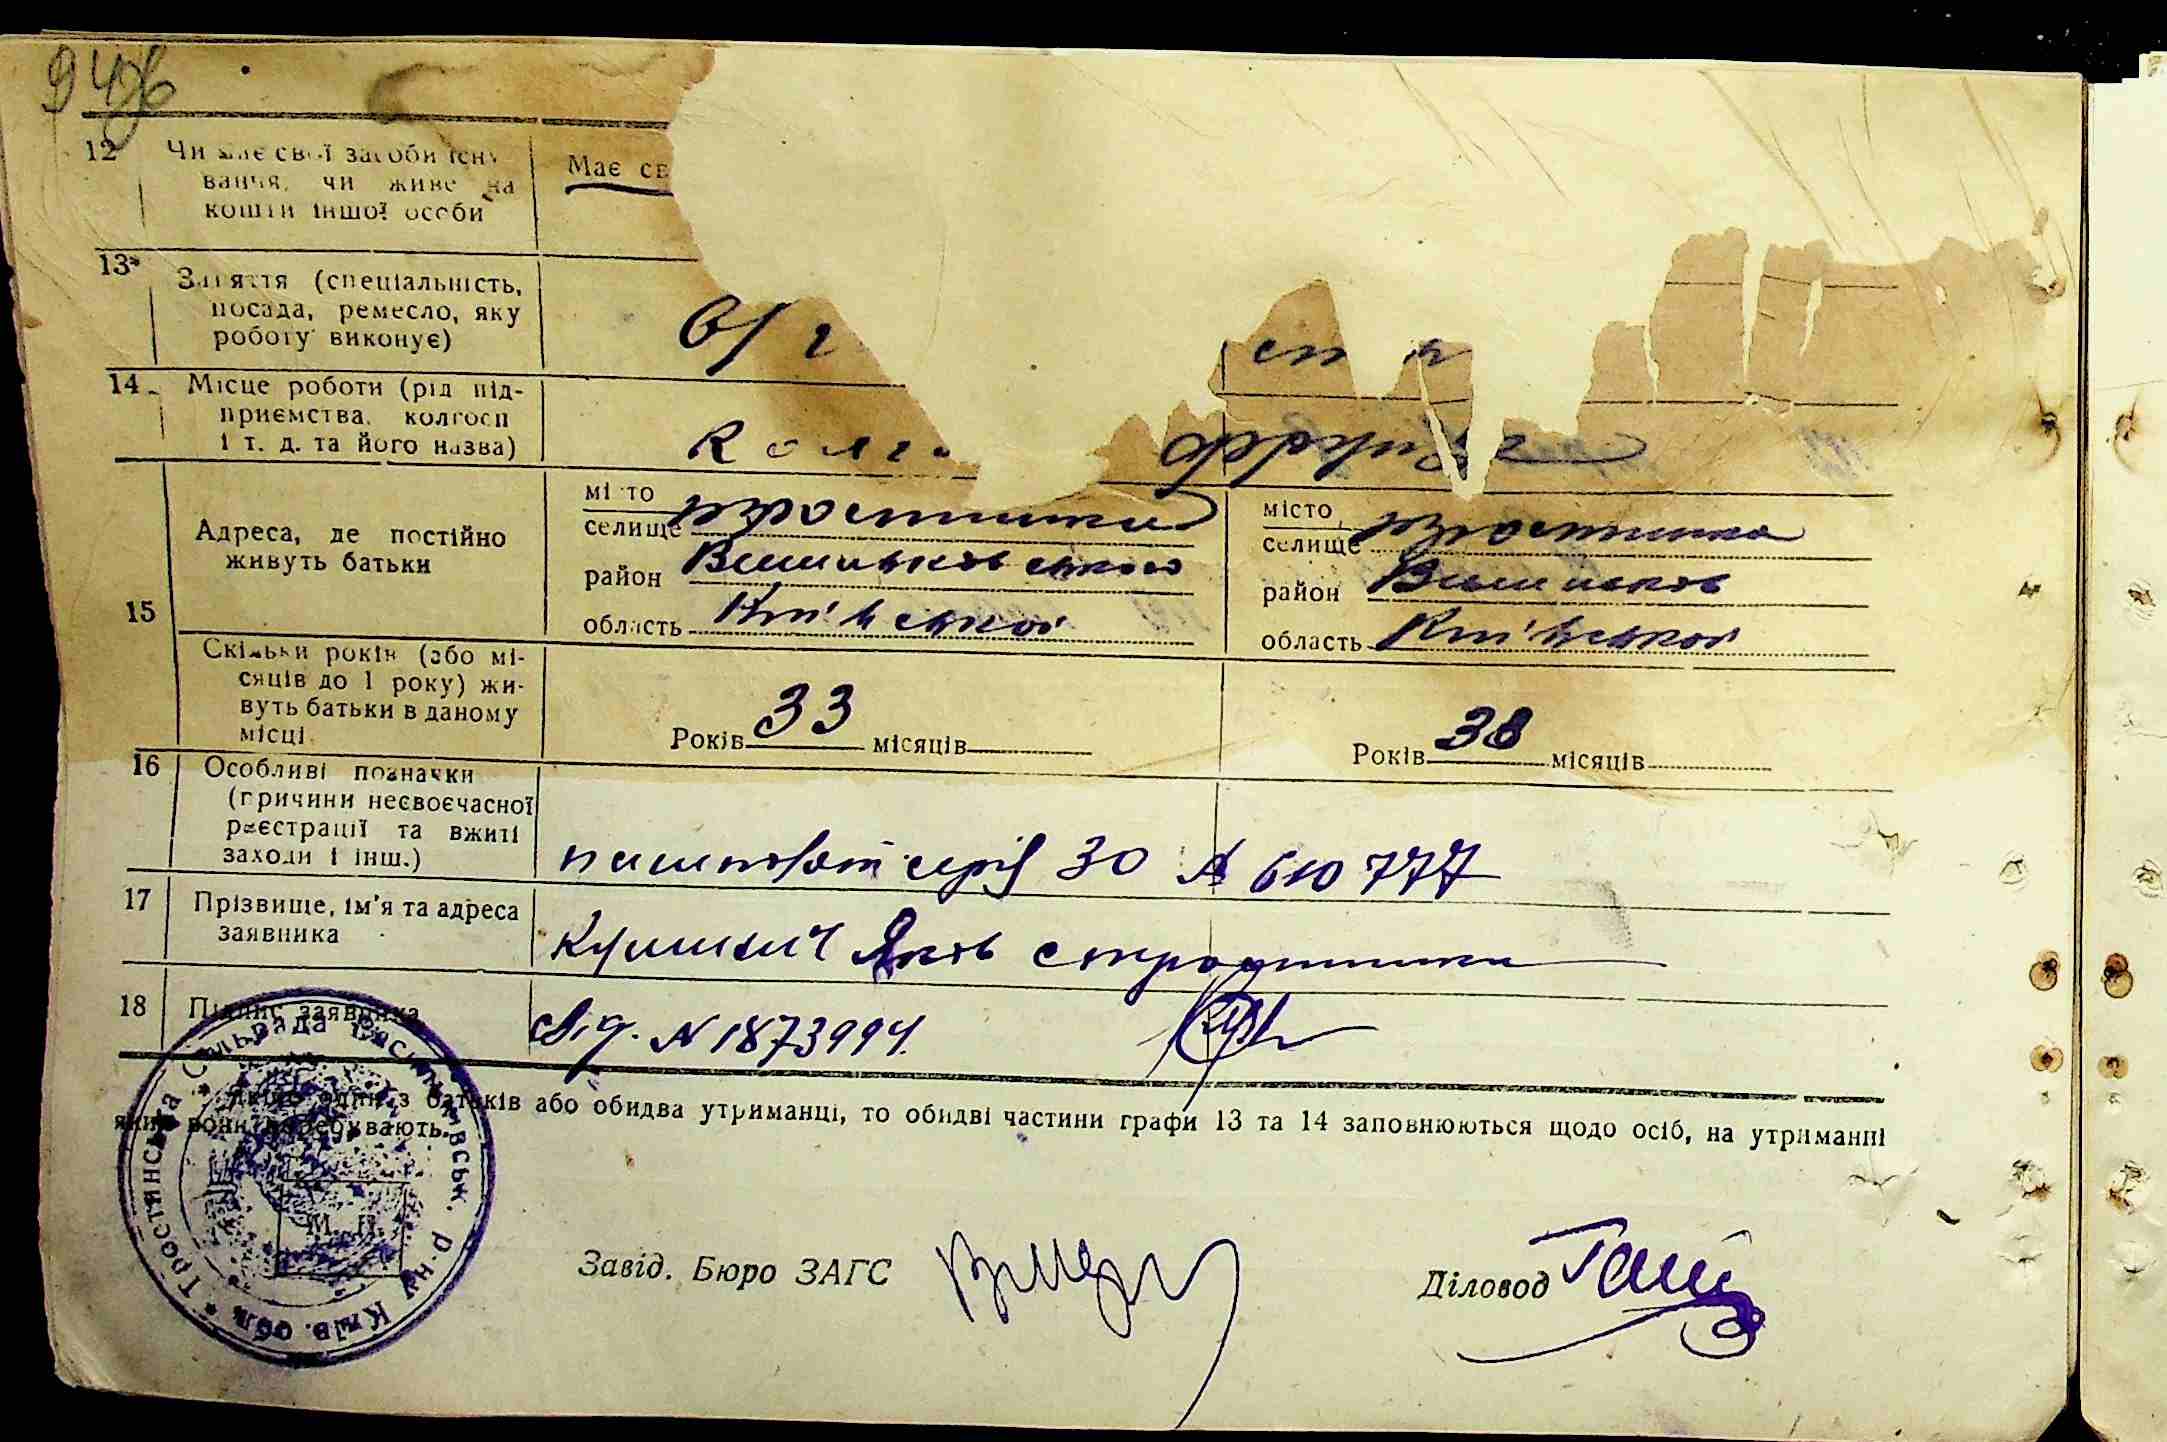 12 Чи має свої засоби існу-
вання, чи живе на
кошти іншої особи
Має св
13 Заняття (спеціальність,
посада, ремесло, яку
роботу виконує)
14 Місце роботи (рід під-
приємства, колгосп
і т. д. та його назва)
Колг
15 Адреса, де постійно
живуть батьки
місто
селище Тростинка
район Васильківського
область Київської
місто
селище Тростинка
район Васильків
область Київської
Скільки років (або мі-
сяців до 1 року) жи-
вуть батьки в даному
місці
Років 33 місяців
Років 38 місяців
16 Особливі позначки
(причини несвоєчасної
реєстрації та вжиті
заходи і інш.)
пашпорт серія 30 А 610777
17 Прізвище, ім'я та адреса
заявника
Яков с Тростинка
18 Підпис заявника
Свід. N 1873994.
Якщо один з батьків або обидва утриманці, то обидві частини графи 13 та 14 заповнюються щодо осіб, на утриманні
яких вони перебувають.
Тростинська Сільрада Васильківськ. р-ну Київ. обл.
М. П.
Завід. Бюро ЗАГС
Діловод